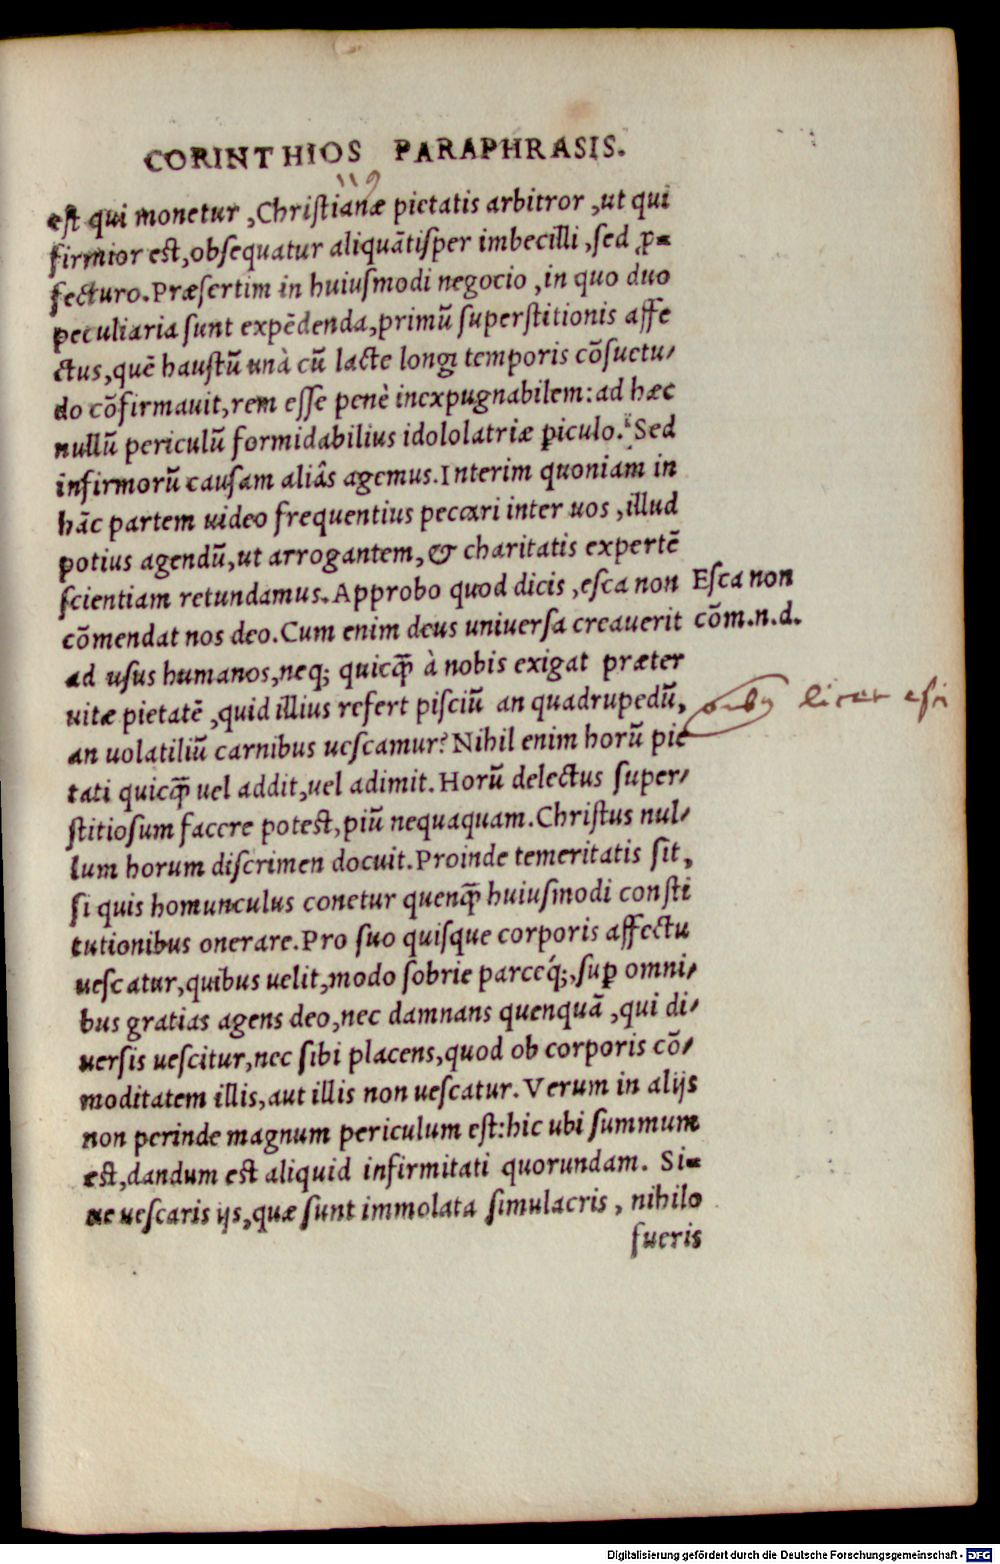 CORINTHIOS PARAPHRASIS.
est qui monetur, Christianæ pietatis arbitror, ut qui
firmior est, obsequatur aliquātisper imbecilli, sed ꝓ-
fecturo. Præsertim in huiusmodi negocio, in quo duo
peculiaria sunt expēdenda, primū superstitionis affe
ctus, quē haustū unà cū lacte longi temporis cōsuetu-
do cōfirmauit, rem esse penè inexpugnabilem: ad hæc
nullū periculū formidabilius idololatriæ ꝑiculo. Sed
infirmorū causam aliâs agemus. Interim quoniam in
hāc partem uideo frequentius peccari inter uos, illud
potius agendū, ut arrogantem, & charitatis expertē
scientiam retundamus. Approbo quod dicis, esca non
cōmendat nos deo. Cum enim deus uniuersa creauerit
Esca non
cōm.n.d.
ad usus humanos, neq; quicq̄ à nobis exigat præter
uitæ pietatē, quid illius refert pisciū an quadrupedū,
licet
an uolatiliū carnibus uescamur? Nihil enim horū pie
tati quicq̄ uel addit, uel adimit. Horū delectus super-
stitiosum facere potest, piū nequaquam. Christus nul-
lum horum discrimen docuit. Proinde temeritatis sit,
si quis homunculus conetur quenq̄ huiusmodi consti
tutionibus onerare. Pro suo quisque corporis affectu
uescatur, quibus uelit, modo sobrie parceq́;, suꝑ omni-
bus gratias agens deo, nec damnans quenquā, qui di-
uersis uescitur, nec sibi placens, quod ob corporis cō-
moditatem illis, aut illis non uescatur. Verum in alijs
non perinde magnum periculum est: hic ubi summum
est, dandum est aliquid infirmitati quorundam. Si-
ue uescaris ijs, quæ sunt immolata simulacris, nihilo
fueris
Digitalisierung gefördert durch die Deutsche Forschungsgemeinschaft - DFG